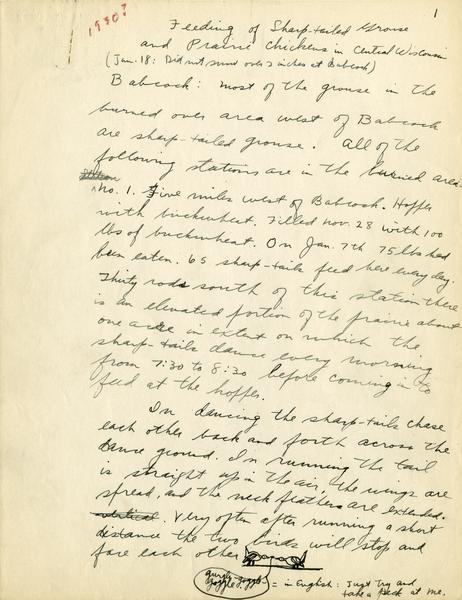 1
1930?
Feeding of Sharp-tailed Grouse
and Prairie Chickens in Central Wisconsin
(Jan. 18: Did not snow over 3 inches at Babcock)
Babcock: Most of the grouse in the
burned over area west of Babcock
are sharp-tailed grouse. All of the
following stations are in the burned area.
No. 1. Five miles west of Babcock. Hopper
with buckwheat. Filled Nov. 28 with 100
lbs of buckwheat. On Jan. 7th 75 lbs had
been eaten. 65 sharp-tails feed here every day.
Thirty rods south of this station there
is an elevated portion of the prairie about
one acre in extent on which the
sharp-tails dance every morning
from 7:30 to 8:30 before coming in to
feed at the hopper.
In dancing the sharp-tails chase
each other back and forth across the
dance ground. In running the tail
is straight up in the air, the wings are
spread, and the neck feathers are extended.
vertical. Very often after running a short
distance the two birds will stop and
face each other
= in English: Just try and
take a peck at me.